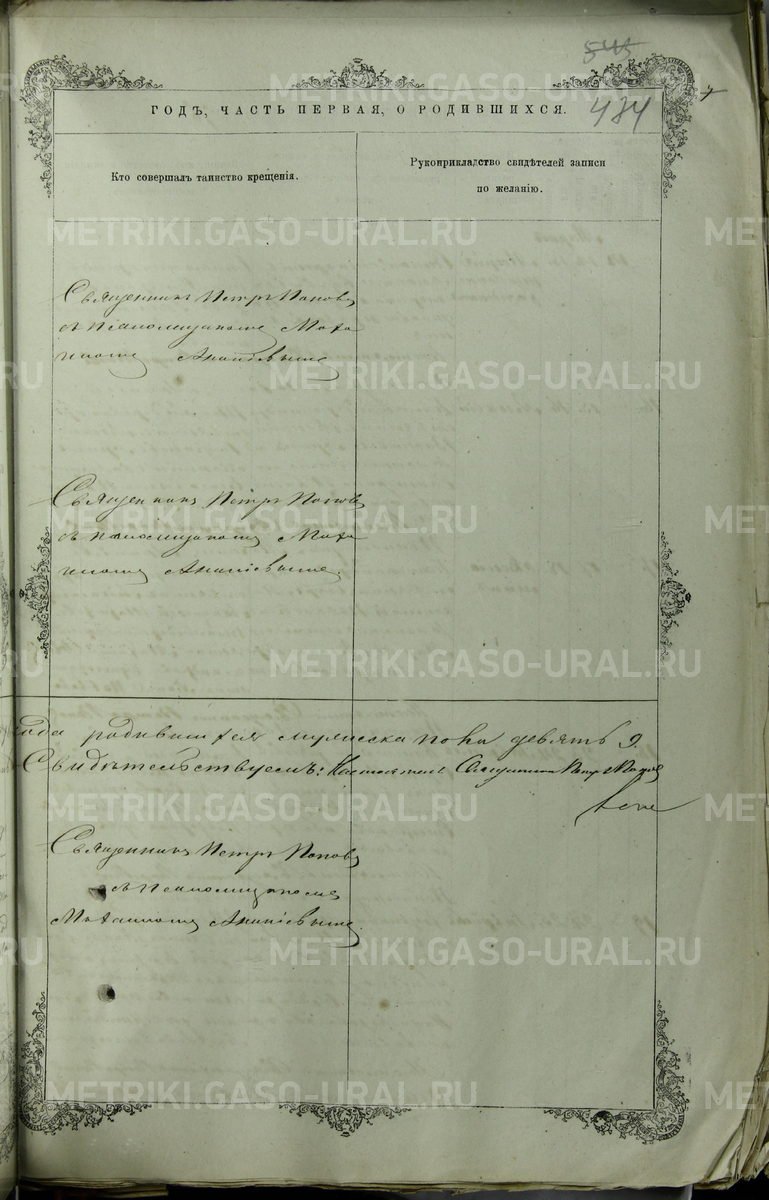 545
ГОДЪ, ЧАСТЬ ПЕРВАЯ, О РОДИВШИХСЯ. 484
Кто совершалъ таинство крещенія.
Рукоприкладство свидѣтелей записи
по желанію.
Священникъ Петръ Поповъ
съ псаломщикомъ
Ананьевымъ
Священникъ Петръ Поповъ
съ псаломщикомъ
Ананіевымъ.
года родившихся мужеска пола девять 9.
Свидѣтельствуемъ: Настоятель Священникъ Петръ Поповъ
Священникъ Петръ Поповъ
съ псаломщикомъ
Ананіевымъ.
METRIKI.GASO-URAL.RU